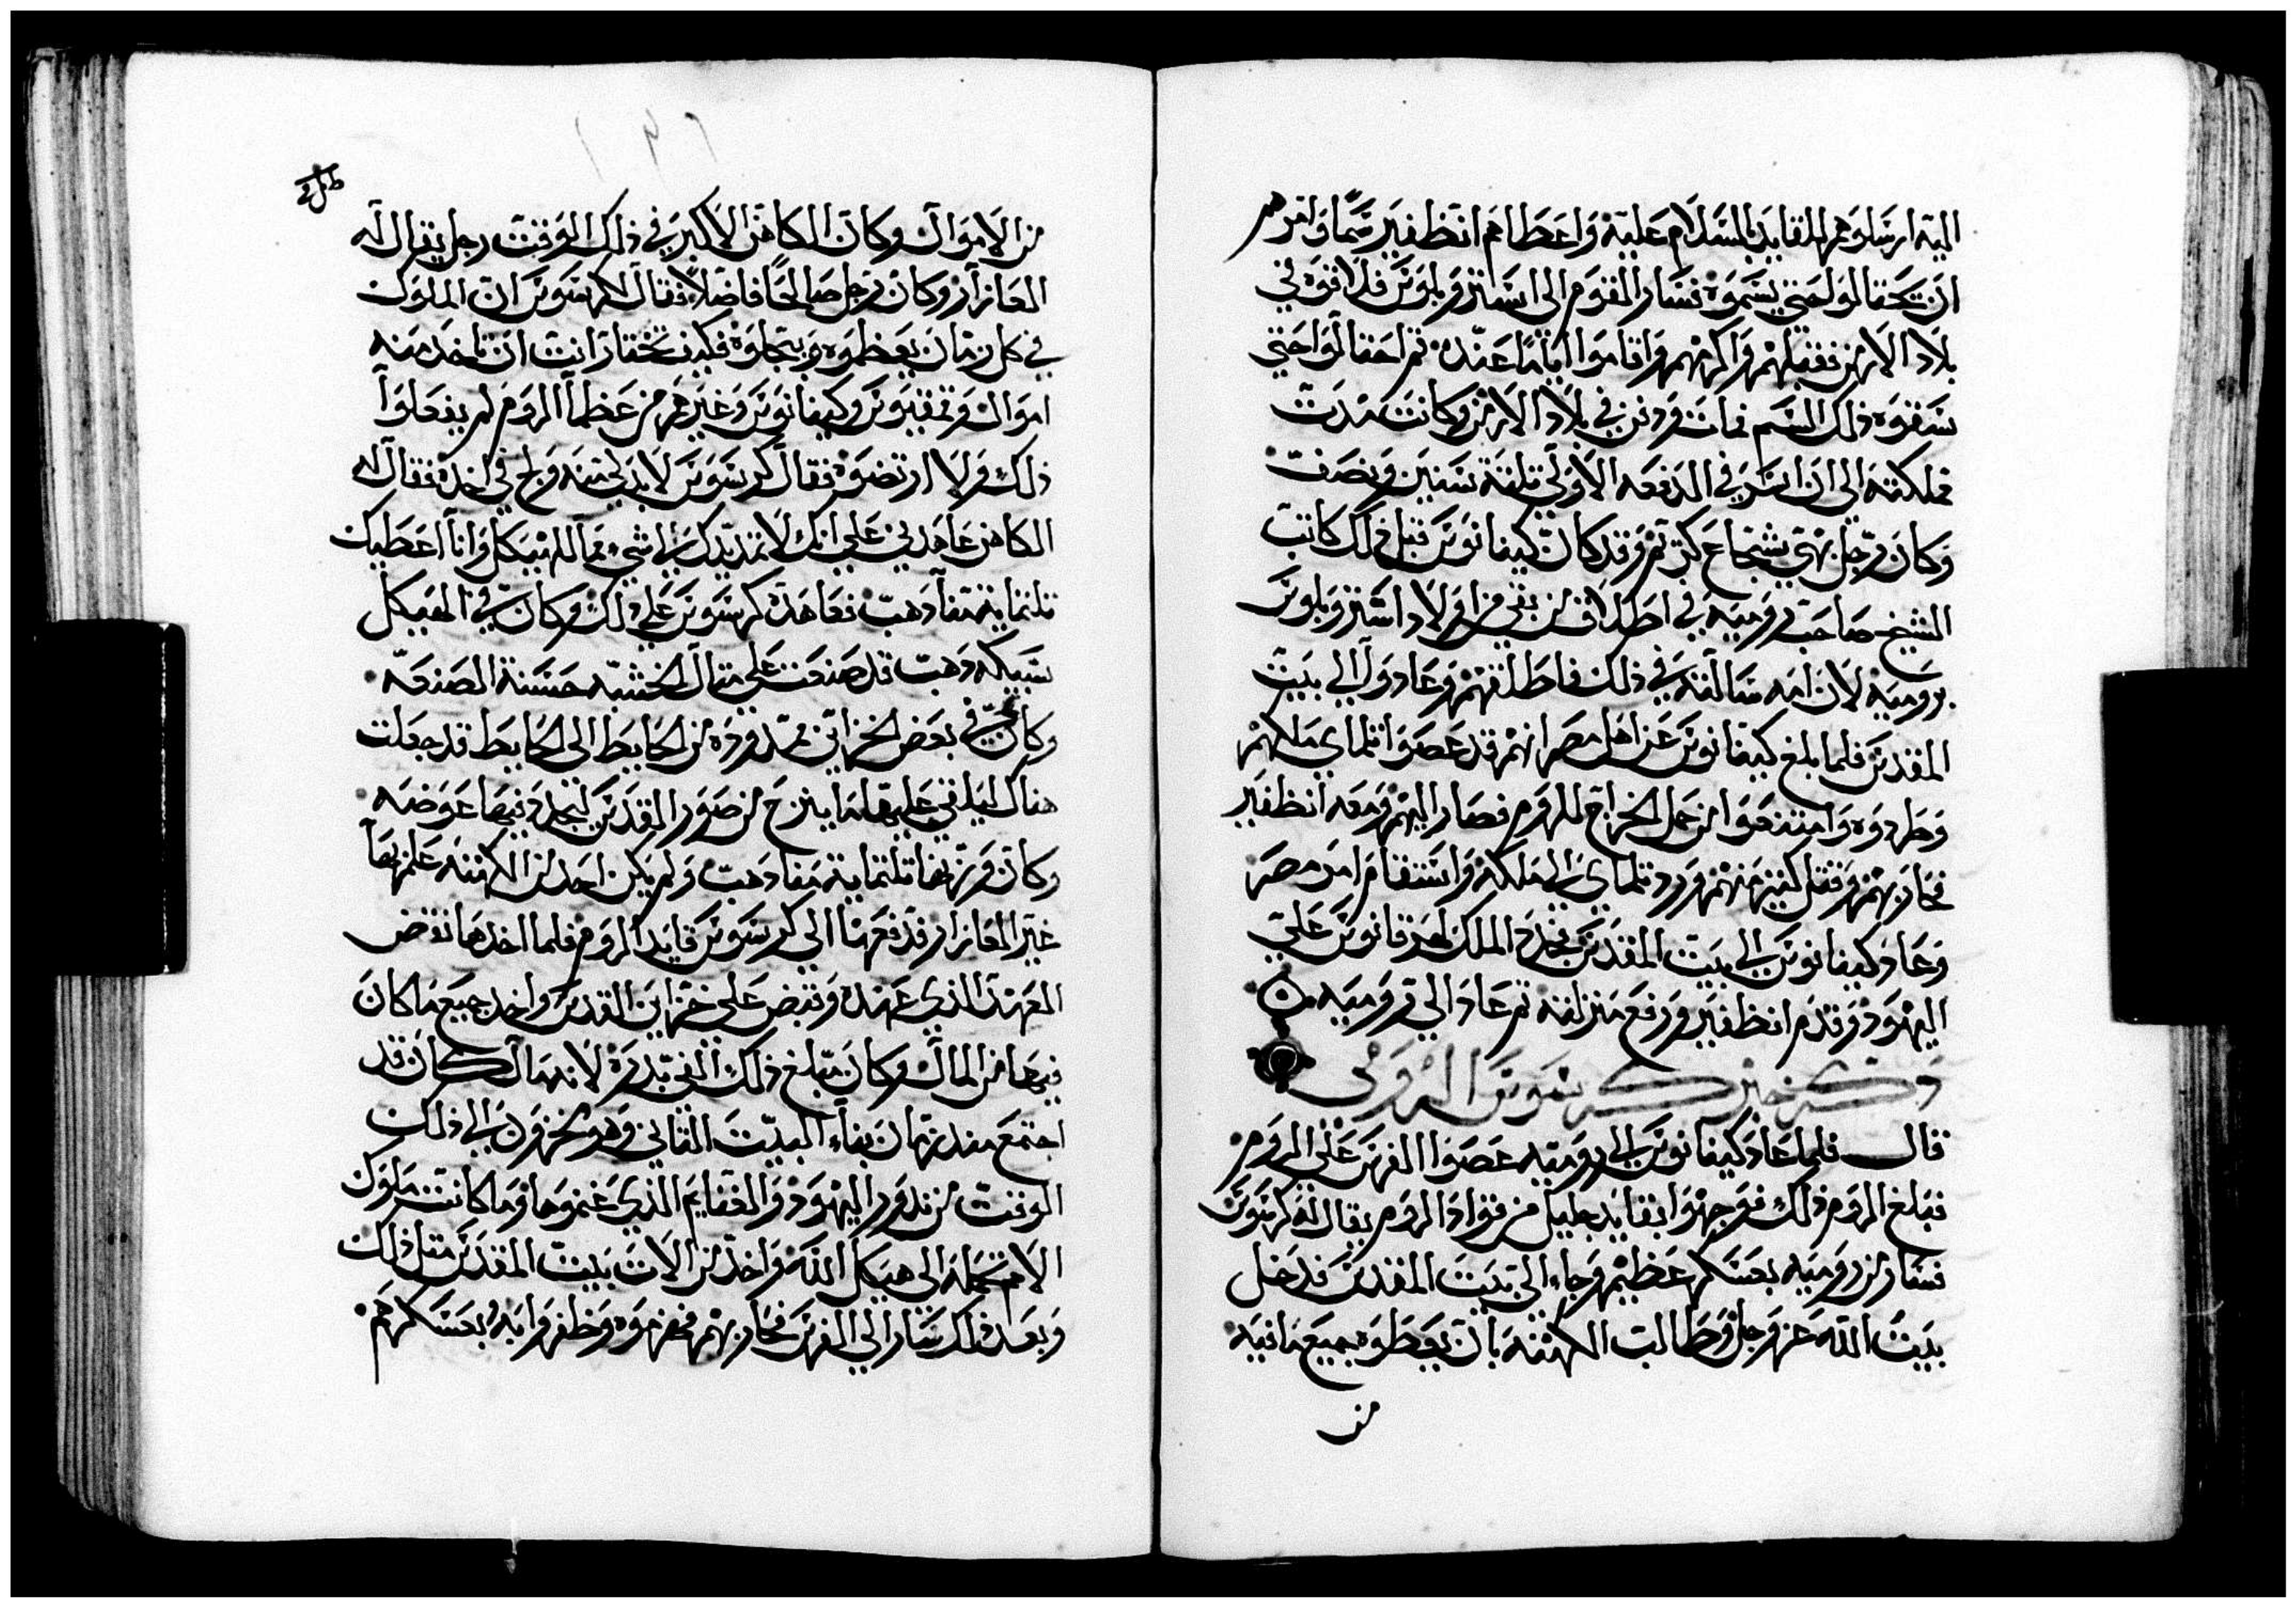 اليه ارسلوهم القايد بالسلام عليه واعطاهم انظفير سما وامرهم
ان يتحتالوا حتي يسموه فسار القوم الي استروبلوس فلاقوه في
بلاد الارمن فقبلهم واكرمهم واقاموا اياما عنده ثم احتالوا حتي
سقوه ذلك السم فمات ودفن في بلاد الارمن وكانت مدت
مملكته الي ان اسر في الدفعه الاولي تلتة سنين ونصف
وكان رجل بهي شجاع كريم وقد كان كيفانوس قبل ذلك كاتب
الشيخ صاحب روميه في اطلاق من بقي من اولاد استروبلوس
بروميه لان امه سالته في ذلك فاطلقهم وعادوا الي بيت
المقدس فلما بلغ كيفانوس عن اهل مصر انهم قد عصوا تلماي ملكهم
وطردوه وامتنعوا من حمل الخراج للروم فصار اليهم ومعه انظفير
فحاربهم وقتل كتير منهم ورد تلماي الي الملكه واستقام امر مصر
وعاد كيفانوس الي بيت المقدس فجدد الملك لهرقانوس علي
اليهود وقدم انظفير ورفع منزلته ثم عاد الي روميه
دكر خبر كرسوس الرومي
قال فلما عاد كيفانوس الي روميه عصوا الفرس علي الروم
فبلغ الروم ذلك فوجهوا بقايد جليل من قواد الروم يقال له كرسوس
فسار من روميه بعسكر عظيم وجاء الي بيت المقدس فدخل
بيت الله عز وجل وطالب الكهنه بان يعطوه جميع مافيه
من
من الاموال وكان الكاهن الاكبر في ذلك الوقت رجل يقال له
العازار وكان رجل صالحا فاضلا فقال لكرسوس ان الملوك
في كل زمان يعظموه ويبجلوه فكيف تختار انت ان تاخد منه
اموال وتمقيوس وكيفانوس وغيرهم من عظما الروم لم يفعلوا
ذلك ولا ارتضوه فقال كرسوس لابد لي منه ولج في اخده فقال له
الكاهن عاهدني علي انك لا تمد يدك الي شي مما للهيكل وانا اعطيك
تلتماية منا دهب فعاهده كرسوس علي ذلك وكان في الهيكل
سبيكه دهب قد صنعت علي متال الخشبه حسنة الصنعه
وكان في بعض الخزاين ممدوده من الحايط الي الحايط قد جعلت
هناك ليلقي عليها ما ينزع من صور المقدس ليجدد فيها عوضه
وكان وزنها تلتماية منا دهب ولم يكن احد من الكهنه علم بها
غير العازار فدفعها الي كرسوس قايد الروم فلما اخدها نقض
العهد الذي عهده وقبض علي خزاين القدس واخد جميع ما كان
فيها من المال وكان مبلغ ذلك الفي بدرة لانه مال كان قد
اجتمع مند زمان بناء البيت التاني وهو يخزن الي ذلك
الوقت من ندور اليهود والغنايم الذي غنموها وما كانت ملوك
الامم تحمله الي هيكل الله واخد من الات بيت المقدس متل ذلك
وبعد ذلك سار الي الفرس فحاربهم فهزموه وظفروا به وبعسكرهم